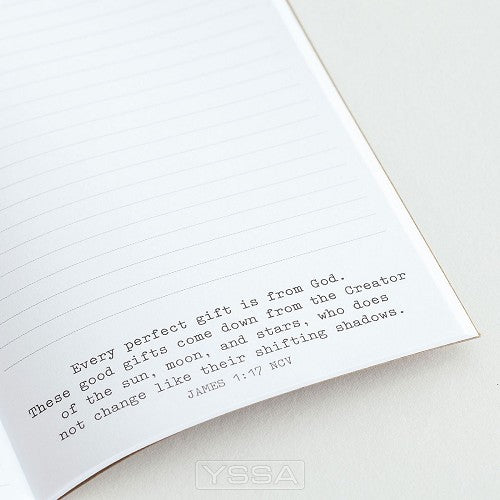 Every perfect gift is from God.
These good gifts come down from the Creator
of the sun, moon, and stars, who does
not change like their shifting shadows.
JAMES 1:17 NCV
YSSA